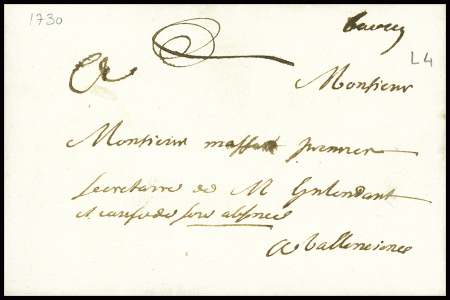 1730
L4
A
Monsieur
Monsieur premier
secretaire de M Gntendant
et cause de son absence
a Vallencienes